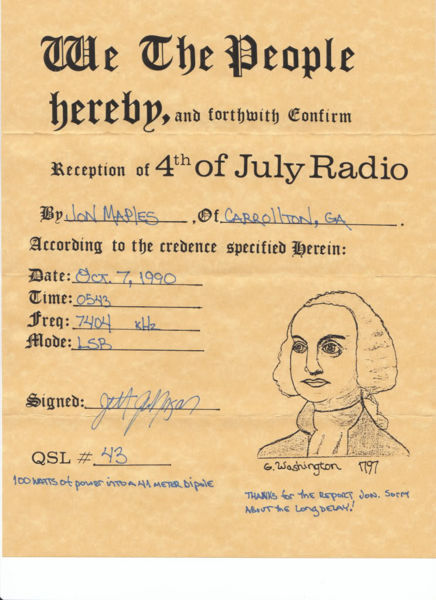 We The People
hereby, and forthwith Confirm
Reception of 4th of July Radio
By JON MAPLES, Of CARROLLTON, GA.
According to the credence specified Herein:
Date: Oct. 7, 1990
Time: 0543
Freq: 7404 kHz
Mode: LSB
Signed:
QSL # 43
G. Washington 1797
100 WATTS of power into a 41 meter Dipole
THANKS for the REPORT, JON. Sorry
About the Long DELAY!